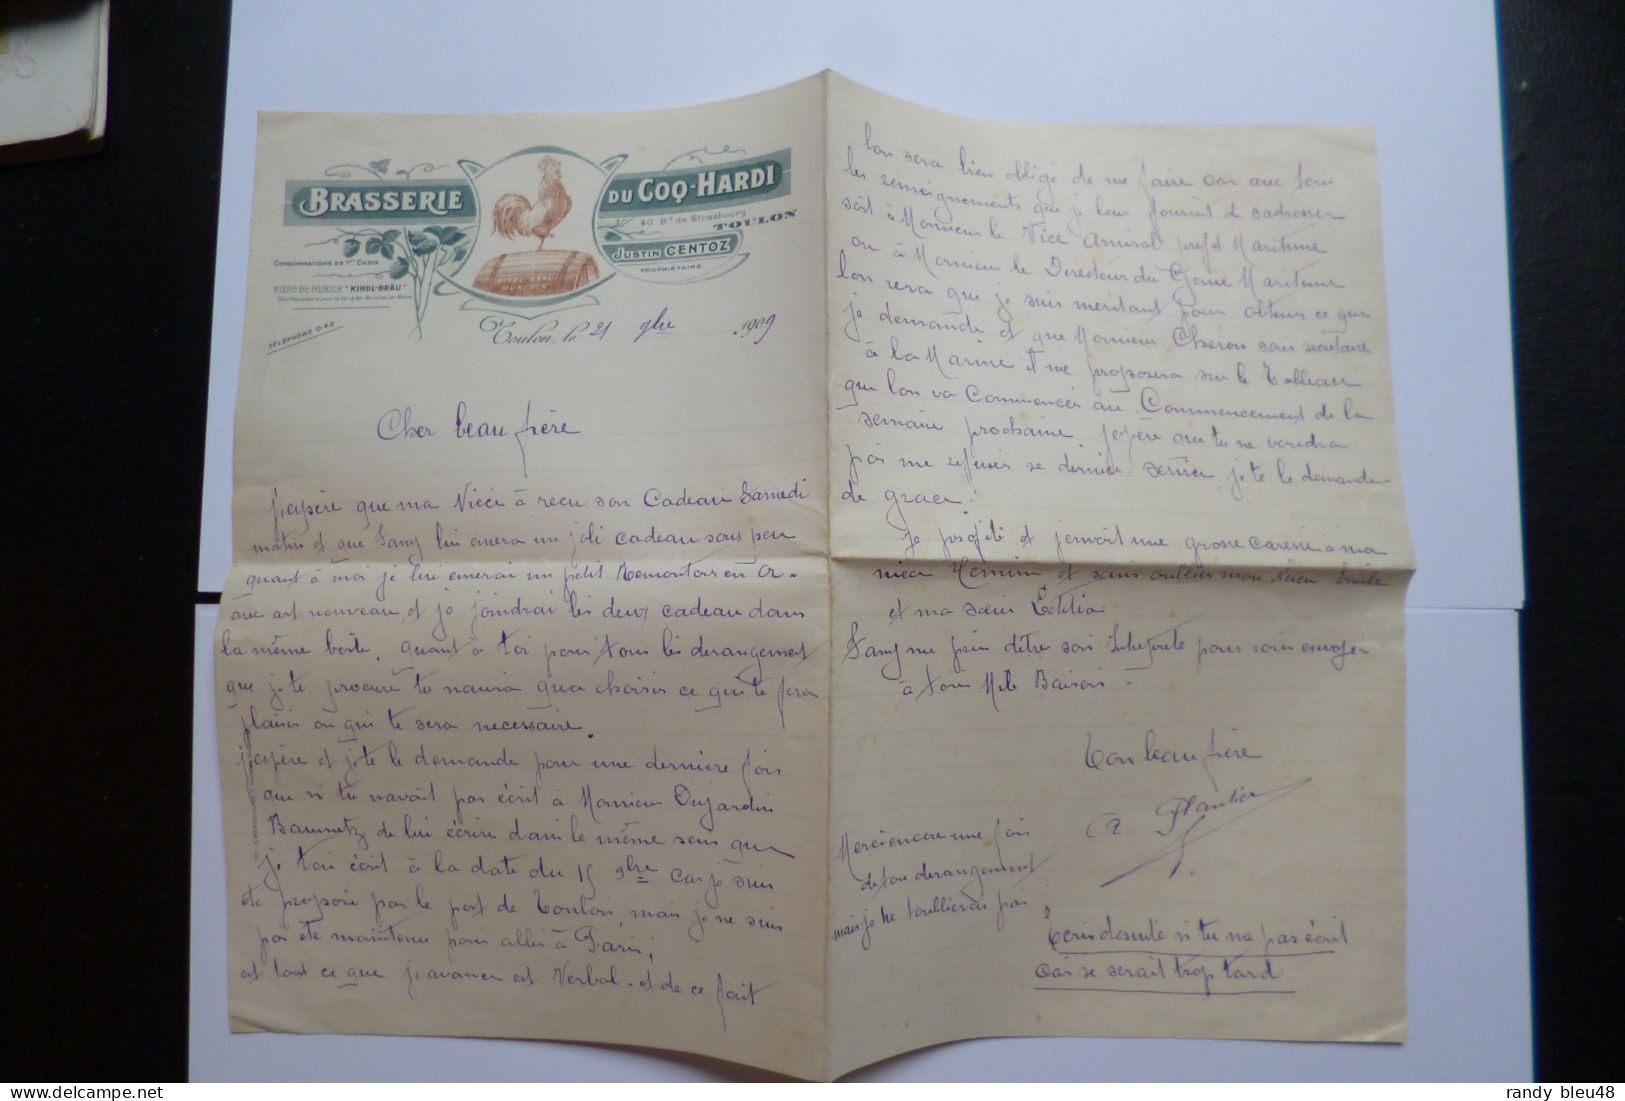 BRASSERIE DU COQ-HARDI
40 Bd de Strasbourg
TOULON
JUSTIN CENTOZ
PROPRIÉTAIRE
CONSOMMATIONS DE 1er CHOIX
BIÈRE DE MUNICH "KINDL-BRÄU"
KINDL-BRÄU
MÜNCHEN
TÉLÉPHONE 0-42
Toulon, le 21 9bre 1909
Cher beau frère
j'espère que ma Niéce à recu son Cadeau Samedi
matin et que Fany lui emera un joli cadeau sous peu
quant à moi je lui emerai un petit Remontoir en or
avec art nouveau et je joindrai les deux cadeau dans
la même boite. quant à toi pour tous les derangement
que je te procure tu naura qua choisir ce qui te fera
plaisir ou qui te sera necessaire.
j'espère et je te le demande pour une dernière fois
que si tu navait pas écrit à Monsieur Dujardin
Baumetz de lui écrire dans le même sens que
je tai écrit à la date du 15 9bre car je suis
été proposé par le port de Toulon, mais je ne suis
pas été maintenu pour aller à Paris,
et tout ce que j'avance est Verbal. et de ce fait
lon sera bien obligé de me faire car avec tous
les renseignements que je leur fournit de sadresser
soit à Monsieur le Vice Amiral préfet Maritime
ou à Monsieur le Directeur du Génie Maritime
lon vera que je suis meritant pour obtenir ce que
je demande et que Monsieur Chéron sous secretaire
à la Marine me proposera sur le Tableau
que lon va Commencer au Commencement de la
semaine prochaine. jespère que tu ne voudra
pas me refuser se dernier service je te le demande
de grace.
Je profite et jenvoit une grosse caresse à ma
niéce et sans oublier mon neveu Emile
et ma sœur Létitia
Fany me prie dêtre son Interprete pour vous envoyer
à tous Mile Baisers -
Ton beau frère
A Plantier
Merci encore une fois
de ton derangement
mais je ne toublierai pas
Ecris desuite si tu na pas écrit
car se serait trop tard
randy bleu48